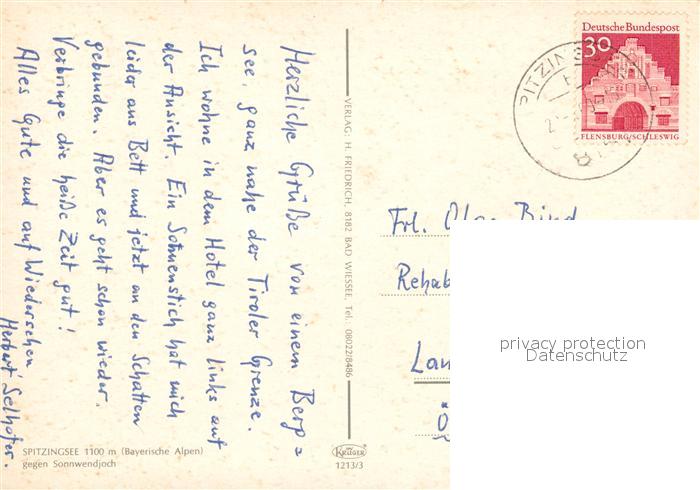 Herzliche Grüße von einem Berg=
see, ganz nahe der Tiroler Grenze.
Ich wohne in dem Hotel ganz links auf
der Ansicht. Ein Sonnenstich hat mich
leider ans Bett und jetzt an den Schatten
gebunden. Aber es geht schon wieder.
Verbringe die heiße Zeit gut!
Alles Gute und auf Wiedersehen
Herbert Selhofer.
SPITZINGSEE 1100 m (Bayerische Alpen)
gegen Sonnwendjoch
VERLAG: H. FRIEDRICH, 8182 BAD WIESSEE, Tel. 08022/8486
KRÜGER
1213/3
Deutsche Bundespost
30
FLENSBURG/SCHLESWIG
SPITZINGSEE
Frl. Olga
Rehab
Lan
privacy protection
Datenschutz